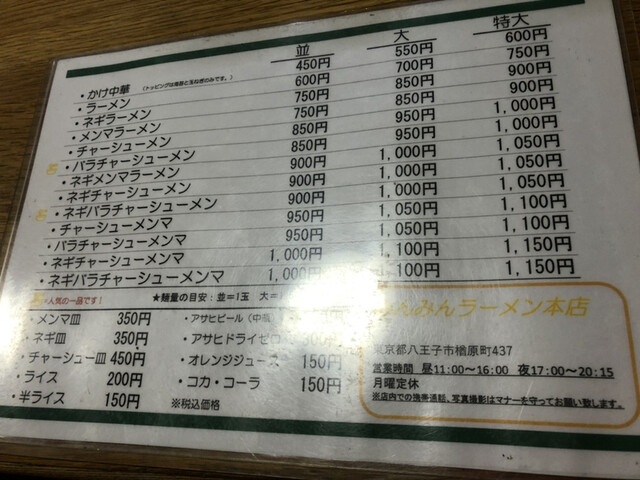 並 大 特大
・かけ中華 (トッピングは海苔と玉ねぎのみです。) 450円 550円 600円
・ラーメン 600円 700円 750円
・ネギラーメン 750円 850円 900円
・メンマラーメン 750円 850円 900円
・チャーシューメン 850円 950円 1,000円
・バラチャーシューメン 850円 950円 1,000円
・ネギメンマラーメン 900円 1,000円 1,050円
・ネギチャーシューメン 900円 1,000円 1,050円
・ネギバラチャーシューメン 900円 1,000円 1,050円
・チャーシューメンマ 950円 1,050円 1,100円
・バラチャーシューメンマ 950円 1,050円 1,100円
・ネギチャーシューメンマ 1,000円 1,100円 1,150円
・ネギバラチャーシューメンマ 1,000円 1,100円 1,150円
人気の一品です!
★麺量の目安:並=1玉 大=
・メンマ皿 350円
・ネギ皿 350円
・チャーシュー皿 450円
・ライス 200円
・半ライス 150円
・アサヒビール(中瓶)
・アサヒドライゼロ
・オレンジジュース 150円
・コカ・コーラ 150円
※税込価格
みんみんラーメン本店
東京都八王子市楢原町437
営業時間 昼11:00〜16:00 夜17:00〜20:15
月曜定休
※店内での携帯通話、写真撮影はマナーを守ってお願い致します。